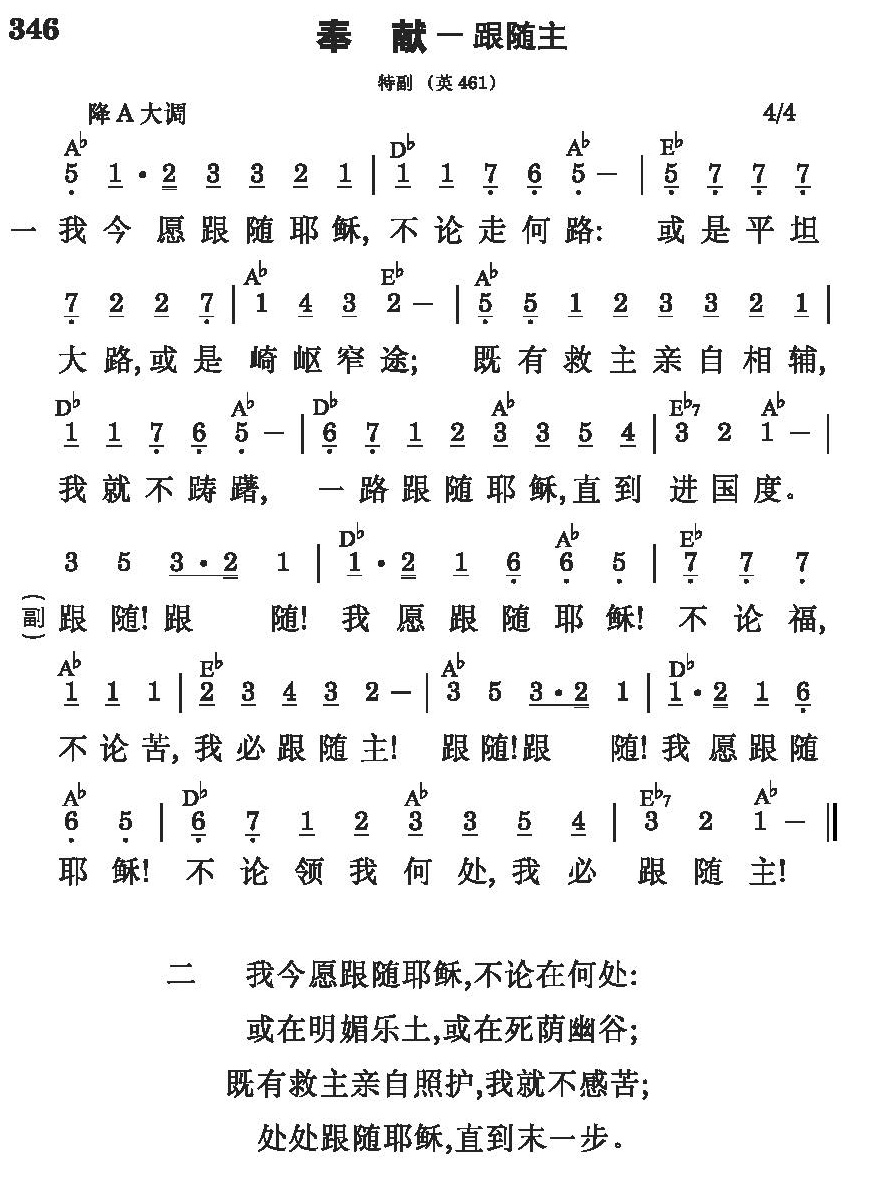 346
奉 献 — 跟随主
特副 （英 461）
降 A 大调 4/4
A♭ D♭ A♭ E♭
5 1 · 2 3 3 2 1 | 1 1 7 6 5 — | 5 7 7 7
一 我今 愿跟随耶稣, 不论走何路: 或是平坦
A♭ E♭ A♭
7 2 2 7 | 1 4 3 2 — | 5 5 1 2 3 3 2 1 |
大路,或是 崎岖窄途; 既有救主亲自相辅,
D♭ A♭ D♭ A♭ E♭7 A♭
1 1 7 6 5 — | 6 7 1 2 3 3 5 4 | 3 2 1 — |
我就不踌躇, 一路跟随耶稣,直到 进国度。
D♭ A♭ E♭
3 5 3 · 2 1 | 1 · 2 1 6 6 5 | 7 7 7
(副) 跟随!跟 随! 我愿跟随耶稣! 不论福,
A♭ E♭ A♭ D♭
1 1 1 | 2 3 4 3 2 — | 3 5 3 · 2 1 | 1 · 2 1 6
不论苦,我必跟随主! 跟随!跟 随!我愿跟随
A♭ D♭ A♭ E♭7 A♭
6 5 | 6 7 1 2 3 3 5 4 | 3 2 1 — ‖
耶稣! 不论领我何处,我必 跟随主!
二 我今愿跟随耶稣,不论在何处:
或在明媚乐土,或在死荫幽谷;
既有救主亲自照护,我就不感苦;
处处跟随耶稣,直到末一步。